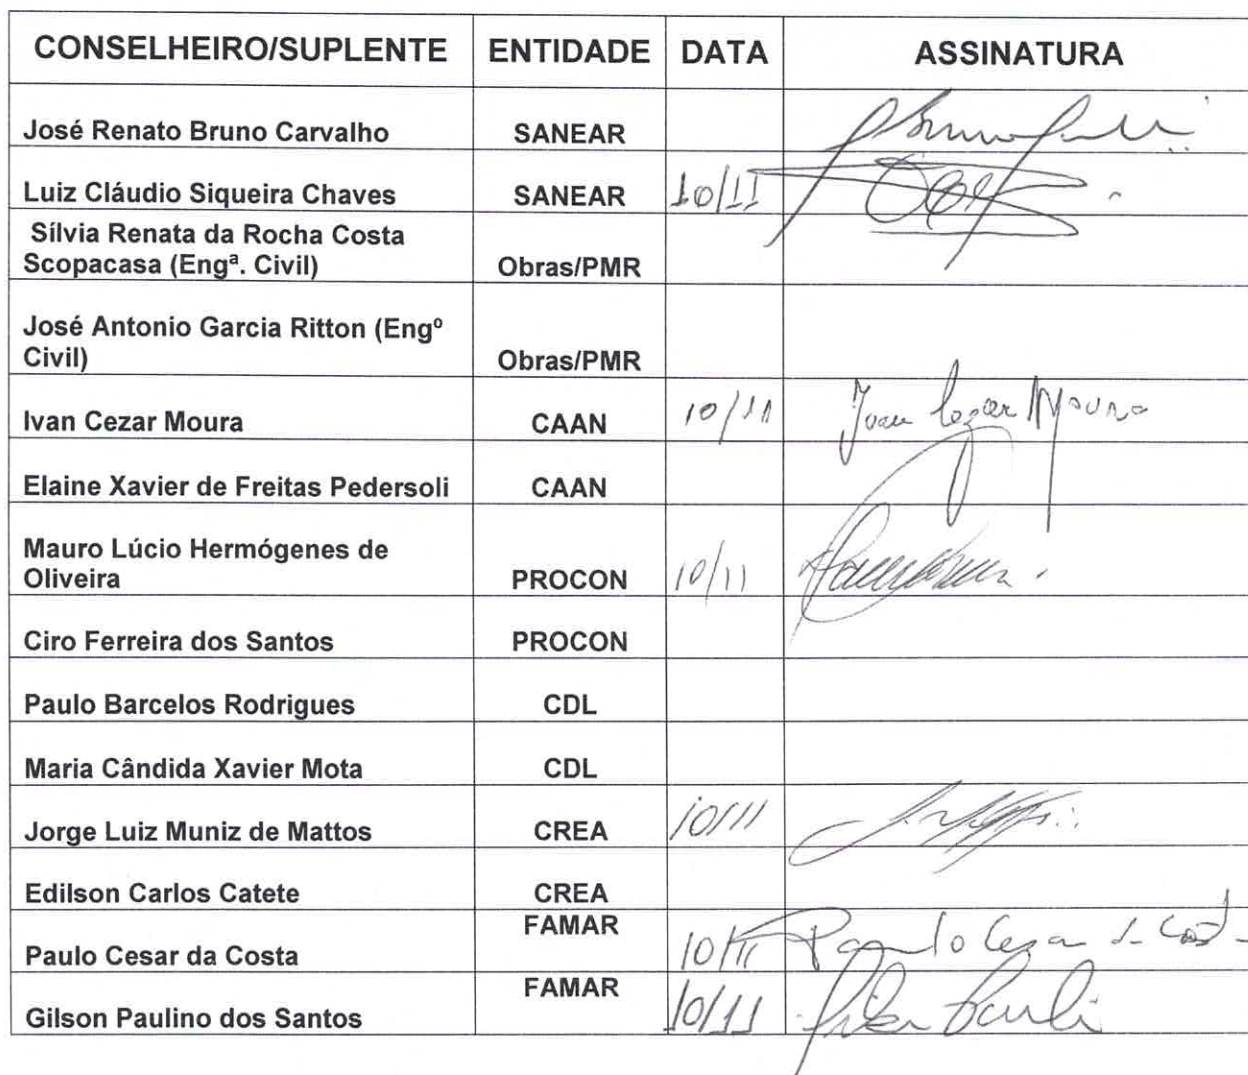 CONSELHEIRO/SUPLENTE ENTIDADE DATA ASSINATURA
José Renato Bruno Carvalho SANEAR
Luiz Cláudio Siqueira Chaves SANEAR 10/11
Sílvia Renata da Rocha Costa
Scopacasa (Engª. Civil) Obras/PMR
José Antonio Garcia Ritton (Engº
Civil) Obras/PMR
Ivan Cezar Moura CAAN 10/11 Ivan Cezar Moura
Elaine Xavier de Freitas Pedersoli CAAN
Mauro Lúcio Hermógenes de
Oliveira PROCON 10/11
Ciro Ferreira dos Santos PROCON
Paulo Barcelos Rodrigues CDL
Maria Cândida Xavier Mota CDL
Jorge Luiz Muniz de Mattos CREA 10/11
Edilson Carlos Catete CREA
FAMAR
Paulo Cesar da Costa 10/11 Paulo Cesar da Costa
FAMAR
Gilson Paulino dos Santos 10/11